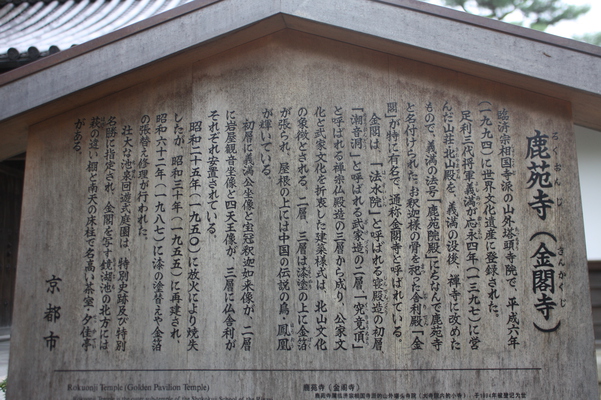 鹿苑寺（金閣寺）
ろくおんじ　きんかくじ
臨済宗相国寺派の山外塔頭寺院で、平成六年
（一九九四）に世界文化遺産に登録された。
足利三代将軍義満が応永四年（一三九七）に営
んだ山荘北山殿を、義満の没後、禅寺に改めた
もので、義満の法号「鹿苑院殿」にちなんで鹿苑寺
と名付けられた。お釈迦様の骨を祀った舎利殿「金
閣」が特に有名で、通称金閣寺と呼ばれている。
金閣は、「法水院」と呼ばれる寝殿造の初層、
「潮音洞」と呼ばれる武家造の二層、「究竟頂」
と呼ばれる禅宗仏殿造の三層から成り、公家文
化と武家文化を折衷した建築様式は、北山文化
の象徴とされる。二層、三層は漆塗の上に金箔
が張られ、屋根の上には中国の伝説の鳥・鳳凰
が輝いている。
初層に義満公坐像と宝冠釈迦如来像が、二層
に岩屋観音坐像と四天王像が、三層に仏舎利が
それぞれ安置されている。
昭和二十五年（一九五〇）に放火により焼失
したが、昭和三十年（一九五五）に再建され、
昭和六十二年（一九八七）に漆の塗替えや金箔
の張替え修理が行われた。
壮大な池泉回遊式庭園は、特別史跡及び特別
名勝に指定され、金閣を写す鏡湖池の北方には
萩の違い棚と南天の床柱で名高い茶室・夕佳亭
がある。
京都市
Rokuonji Temple (Golden Pavilion Temple)
鹿苑寺（金阁寺）